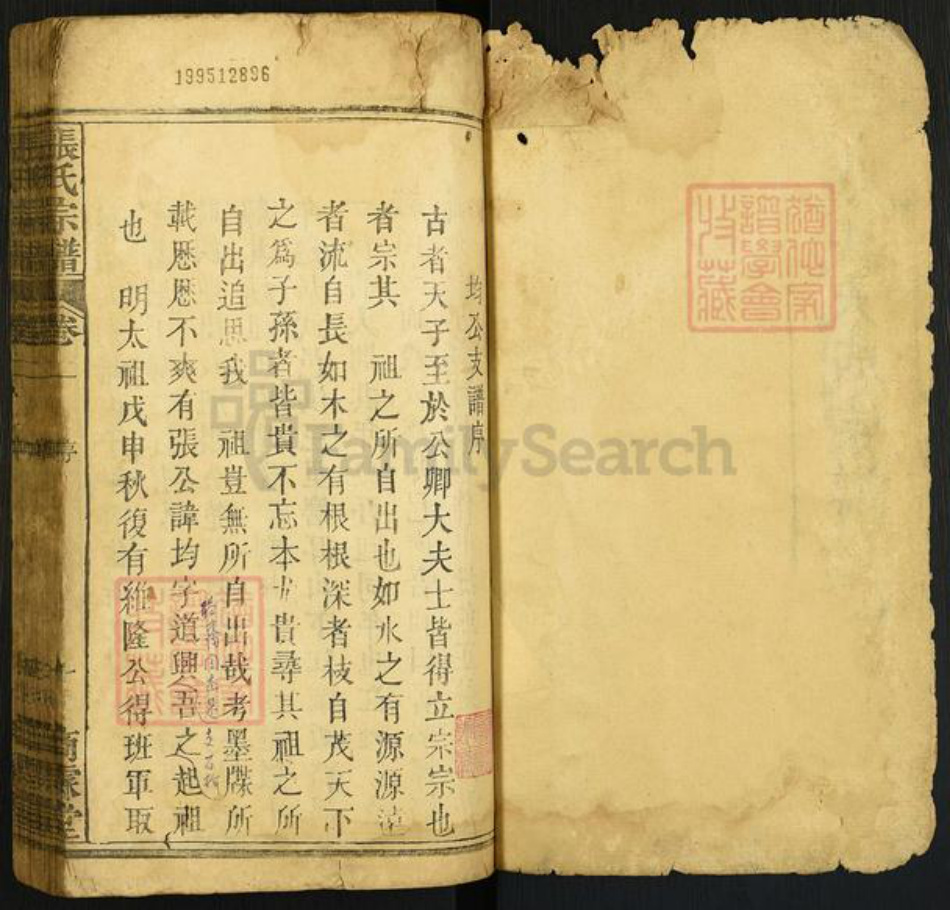 199512896
均公支譜序
古者天子至於公卿大夫士皆得立宗宗也
者宗其 祖之所自出也如水之有源源
者流自長如木之有根根深者枝自茂天下
之爲子孫者皆貴不忘本尤貴尋其祖之所
自出追思我 祖豈無所自出哉考墨牒所
載歷歷不爽有張公諱均字道興吾之起祖
也 明太祖戊申秋復有維隆公得班軍取
張氏宗譜
卷一
序
一
堂
猶他家譜學會收藏
FamilySearch